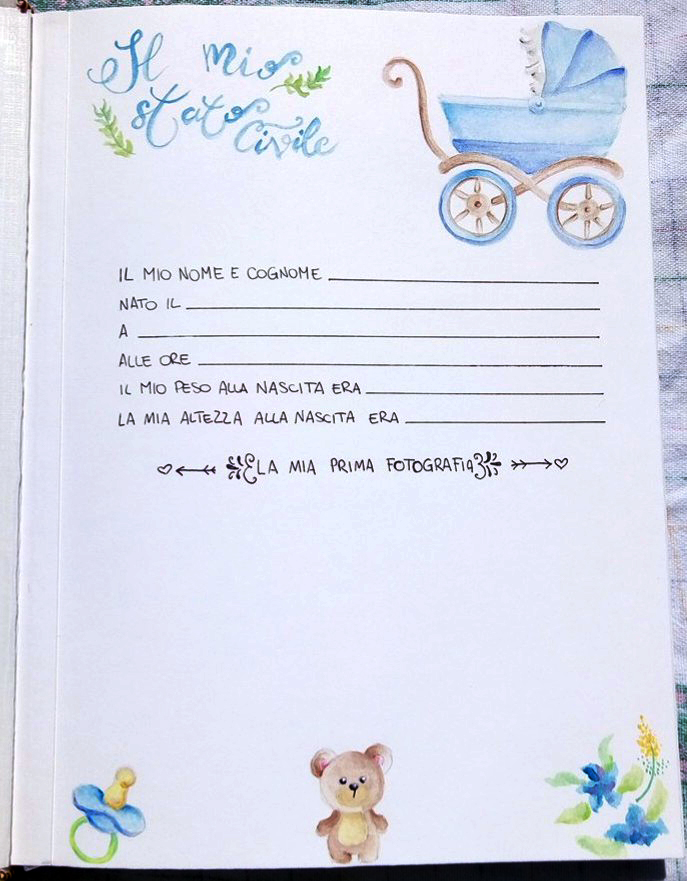 Il mio
stato
civile
IL MIO NOME E COGNOME
NATO IL
A
ALLE ORE
IL MIO PESO ALLA NASCITA ERA
LA MIA ALTEZZA ALLA NASCITA ERA
LA MIA PRIMA FOTOGRAFIA